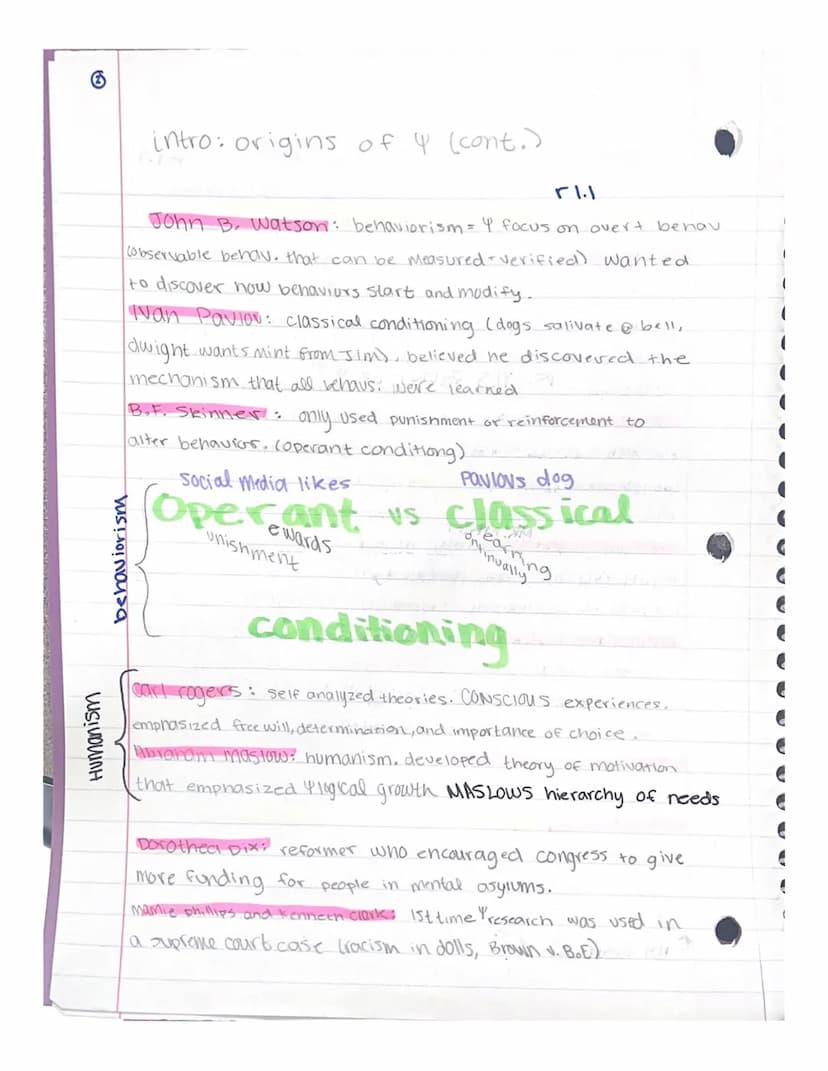 2
intro: origins of Ψ (cont.)
r1.1
John B. Watson: behaviorism = Ψ focus on overt behav
(observable behav. that can be measured + verified) wanted
to discover how behaviors start and modify.
Ivan Pavlov: classical conditioning (dogs salivate @ bell,
dwight wants mint from Jim). believed he discovered the
mechanism that all behavs. were learned
B.F. Skinner: only used punishment or reinforcement to
alter behaviors. (operant conditiong)
social media likes
Pavlovs dog
Operant vs classical
ewards
unishment
earning
ontinually
conditioning
behaviorism
Humanism
Carl rogers: self analyzed theories. CONSCIOUS experiences.
emphasized free will, determination, and importance of choice.
Abraham Maslow: humanism. developed theory of motivation
that emphasized Ψlogical growth MASLOWS hierarchy of needs
Dorothea Dix: reformer who encouraged congress to give
more funding for people in mental asylums.
Mamie phillips and Kenneth Clark: 1st time Ψ research was used in
a supreme court case (racism in dolls, Brown v. B.O.E)